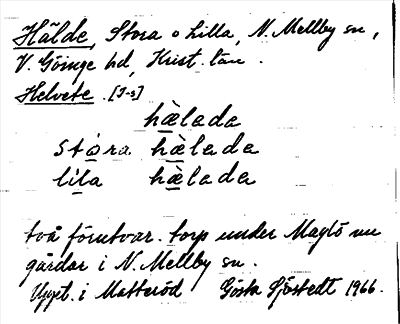 Hälde, Stora o Lilla, N. Mellby sn,
V. Göinge hd, Krist. län.
Helvete. [J-s]
hælada
stora hælada
lila hælada
två förutvar. torp under Maglö nu
gårdar i N. Mellby sn.
Uppt. i Matteröd Gösta Sjöstedt 1966.